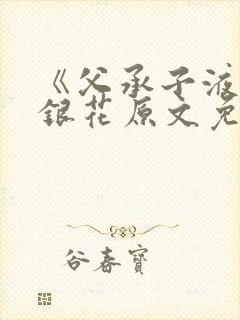 《父承子液
銀花原文免
谷春寶